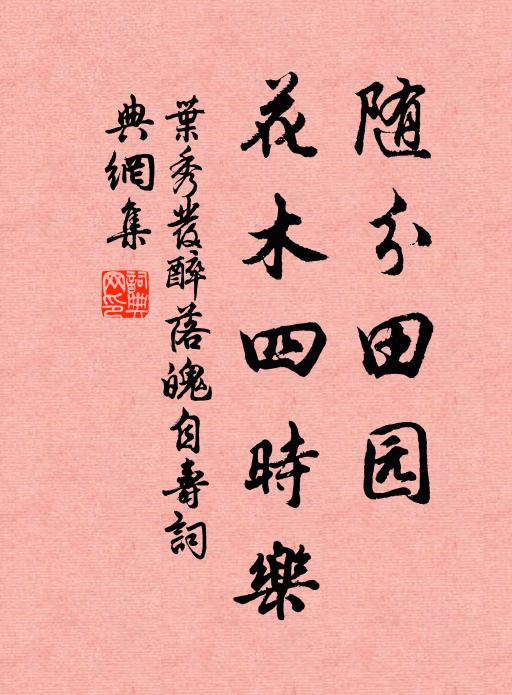 随分田园
花木四時樂
葉秀發醉落魄自壽詞
典網集
詞典网印